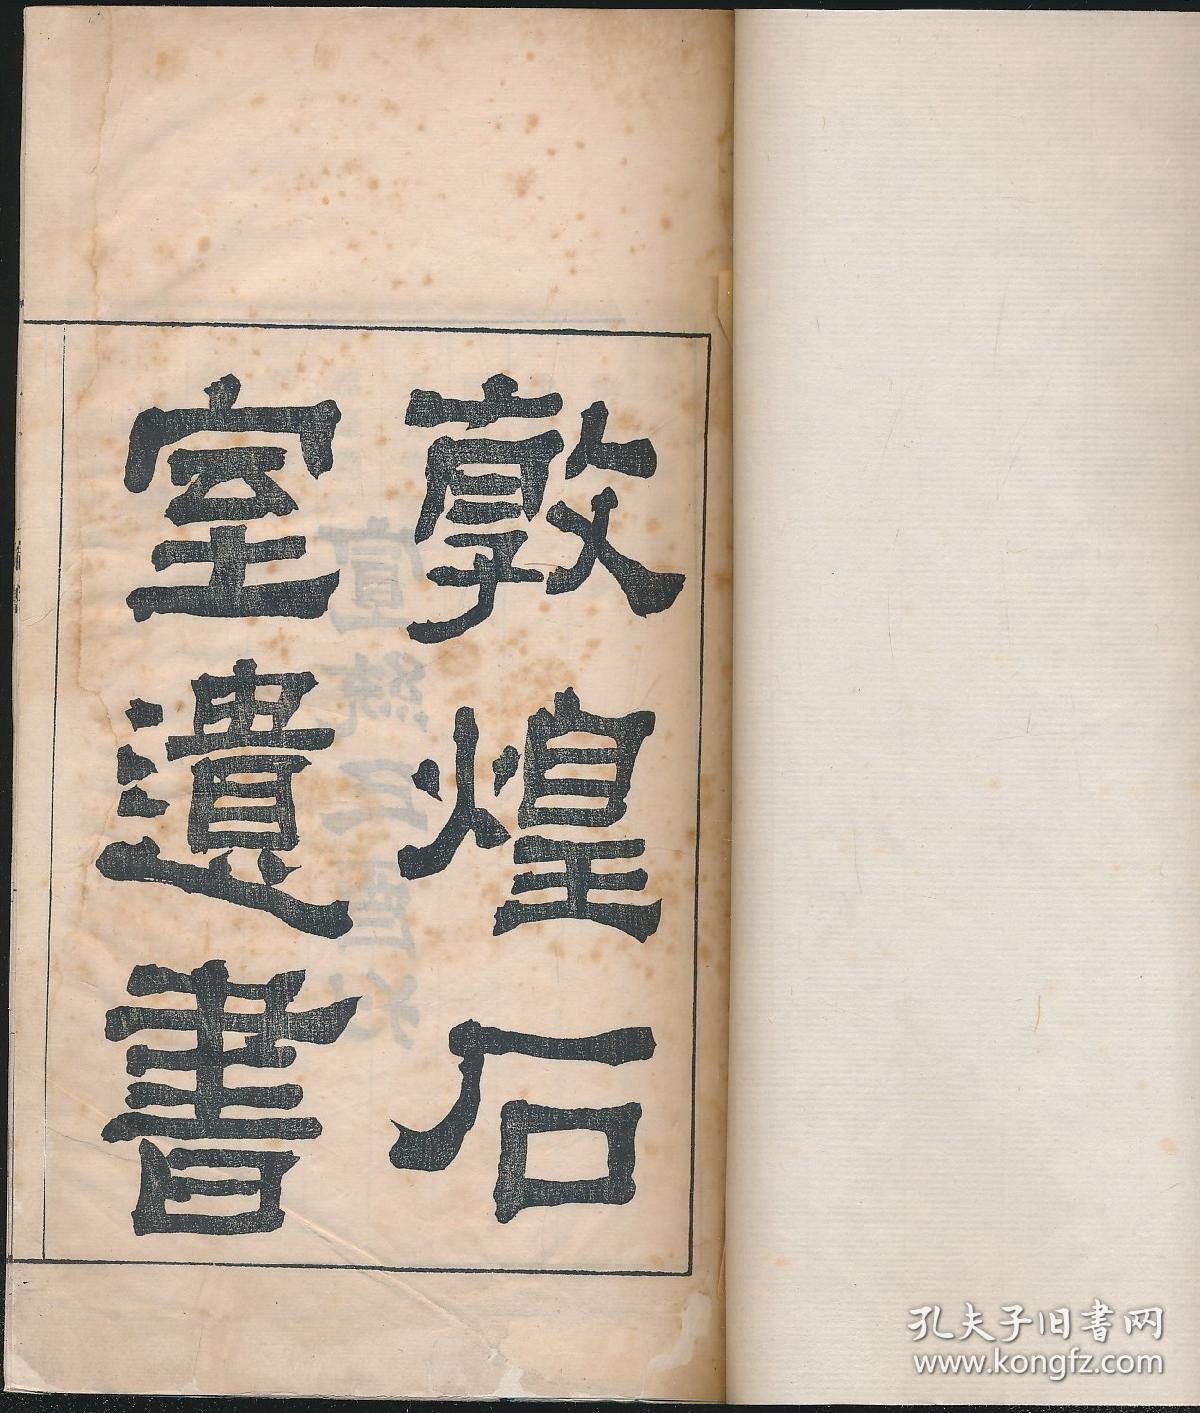 敦煌石
室遺書
孔夫子旧书网
www.kongfz.com